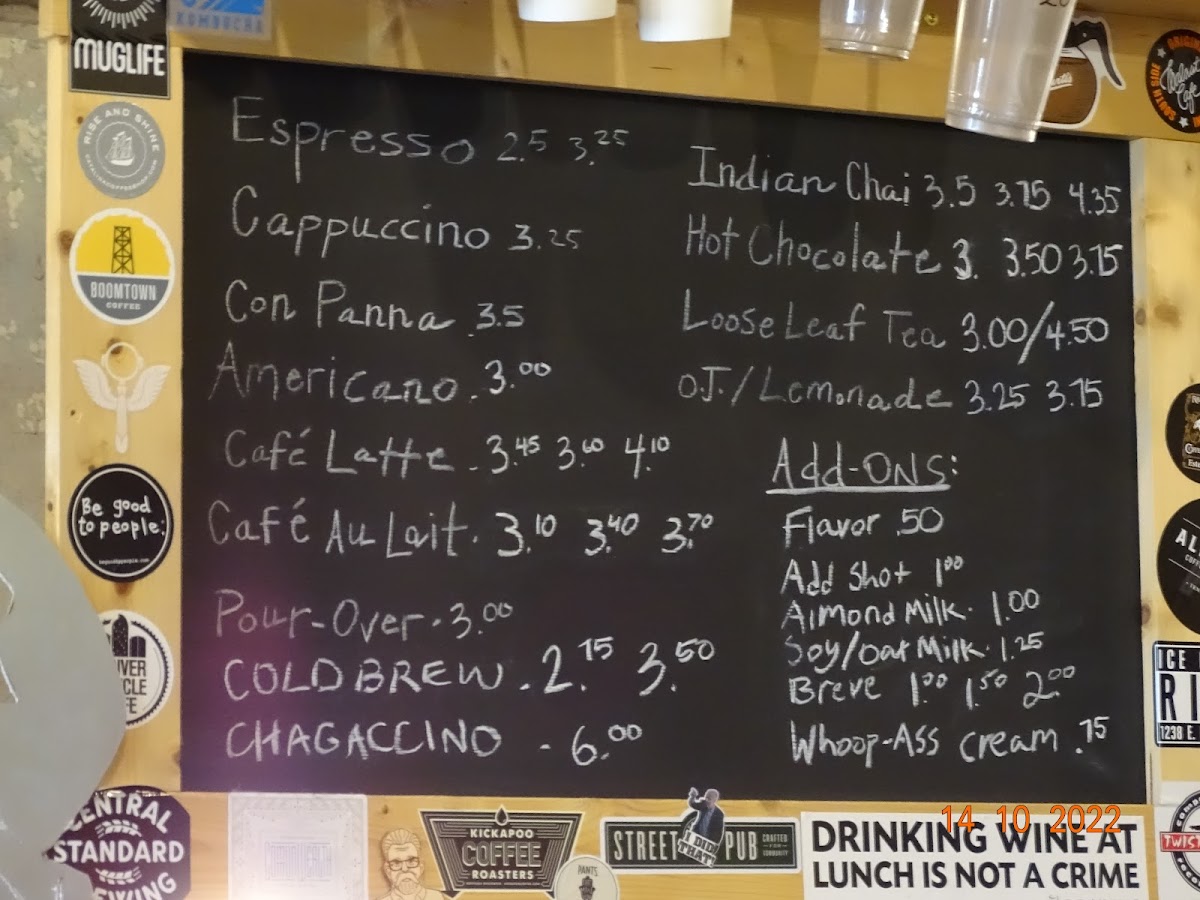 KOMBUCHA
MUGLIFE
RISE AND SHINE
BOOMTOWN
COFFEE
Be good
to people.
CENTRAL
STANDARD
Espresso 2.5 3.25
Cappuccino 3.25
Con Panna 3.5
Americano 3.00
Café Latte 3.45 3.60 4.10
Café Au Lait 3.10 3.40 3.70
Pour-Over 3.00
COLD BREW 2.75 3.50
CHAGACCINO - 6.00
Indian Chai 3.5 3.75 4.35
Hot Chocolate 3. 3.50 3.75
Loose Leaf Tea 3.00/4.50
O.J./Lemonade 3.25 3.75
Add-ONS:
Flavor .50
Add Shot 1.00
Almond Milk 1.00
Soy/Oat Milk 1.25
Breve 1.00 1.50 2.00
Whoop-Ass cream .75
KICKAPOO
COFFEE
ROASTERS
STREET PUB
I DID
THAT!
CRAFTED
FOR
COMMUNITY
PANTS
14 10 2022
DRINKING WINE AT
LUNCH IS NOT A CRIME
ICE
1238 E.